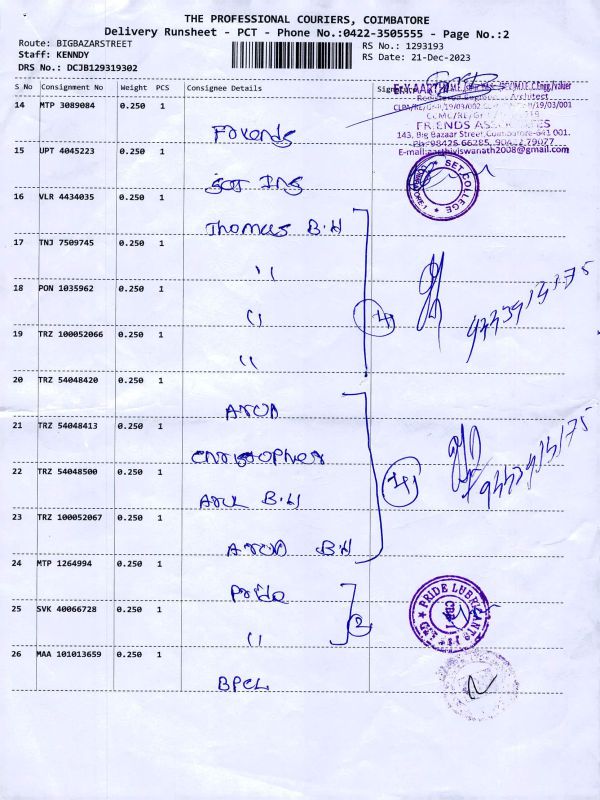 THE PROFESSIONAL COURIERS, COIMBATORE
Delivery Runsheet - PCT - Phone No.:0422-3505555 - Page No.:2
Route: BIGBAZARSTREET
Staff: KENNDY
DRS No.: DCJB129319302
RS No.: 1293193
RS Date: 21-Dec-2023
S No Consignment No Weight PCS Consignee Details
14 MTP 3089084 0.250 1
FRIENDS ASSOCIATES
143, Big Bazaar Street, Coimbatore-641 001.
E-mail:aarthiviswanath2008@gmail.com
15 UPT 4045223 0.250 1
SET Ins
SET COLLEGE
16 VLR 4434035 0.250 1
Thomas B.H
17 TNJ 7509745 0.250 1
"
18 PON 1035962 0.250 1
" 4
19 TRZ 100052066 0.250 1
"
20 TRZ 54048420 0.250 1
21 TRZ 54048413 0.250 1
Christopher
22 TRZ 54048500 0.250 1
Arul B.H
23 TRZ 100052067 0.250 1
B.H
24 MTP 1264994 0.250 1
Pride
PRIDE LUBRICANTS
CBE-1
25 SVK 40066728 0.250 1
" 2
26 MAA 101013659 0.250 1
BPCL